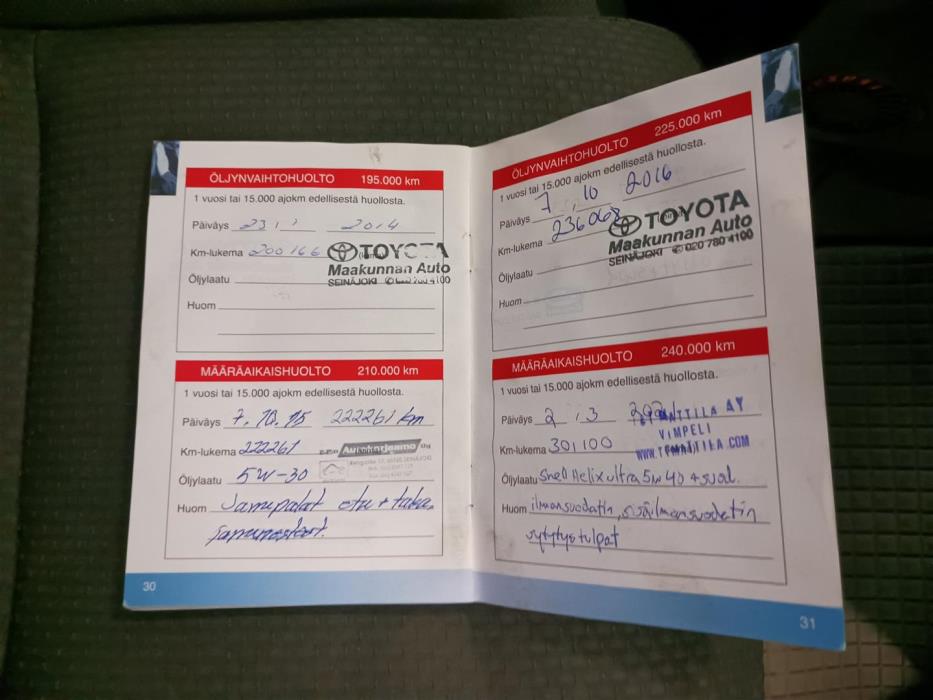 ÖLJYNVAIHTOHUOLTO 195.000 km
1 vuosi tai 15.000 ajokm edellisestä huollosta.
Päiväys 2014
Km-lukema 200166
TOYOTA
Maakunnan Auto
SEINÄJOKI
Öljylaatu
Huom
MÄÄRÄAIKAISHUOLTO 210.000 km
1 vuosi tai 15.000 ajokm edellisestä huollosta.
Päiväys 7.10.15 222261 km
Km-lukema 222261
Autokorjaamo
Öljylaatu 5W-30
Huom Jarrupalat etu + taka
30
ÖLJYNVAIHTOHUOLTO 225.000 km
1 vuosi tai 15.000 ajokm edellisestä huollosta.
Päiväys 7 . 10 2016
Km-lukema 236068
TOYOTA
Maakunnan Auto
SEINÄJOKI 020 780 4100
Öljylaatu
Huom
MÄÄRÄAIKAISHUOLTO 240.000 km
1 vuosi tai 15.000 ajokm edellisestä huollosta.
Päiväys 2 . 3
VIMPELI
Km-lukema 301100
Öljylaatu Shell Helix ultra 5w40 + suod.
Huom ilmansuodatin, sisäilmansuodatin
sytytystulpat
31